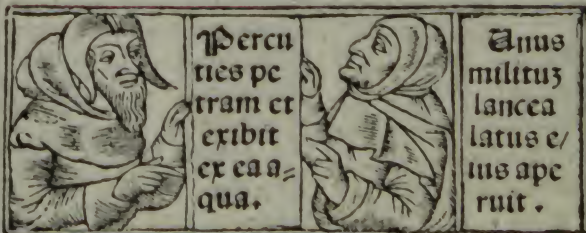 Percu
ties pe
tram et
exibit
ex ea a⸗
qua.
Unus
milituz
lancea
latus e/
ius ape
ruit.